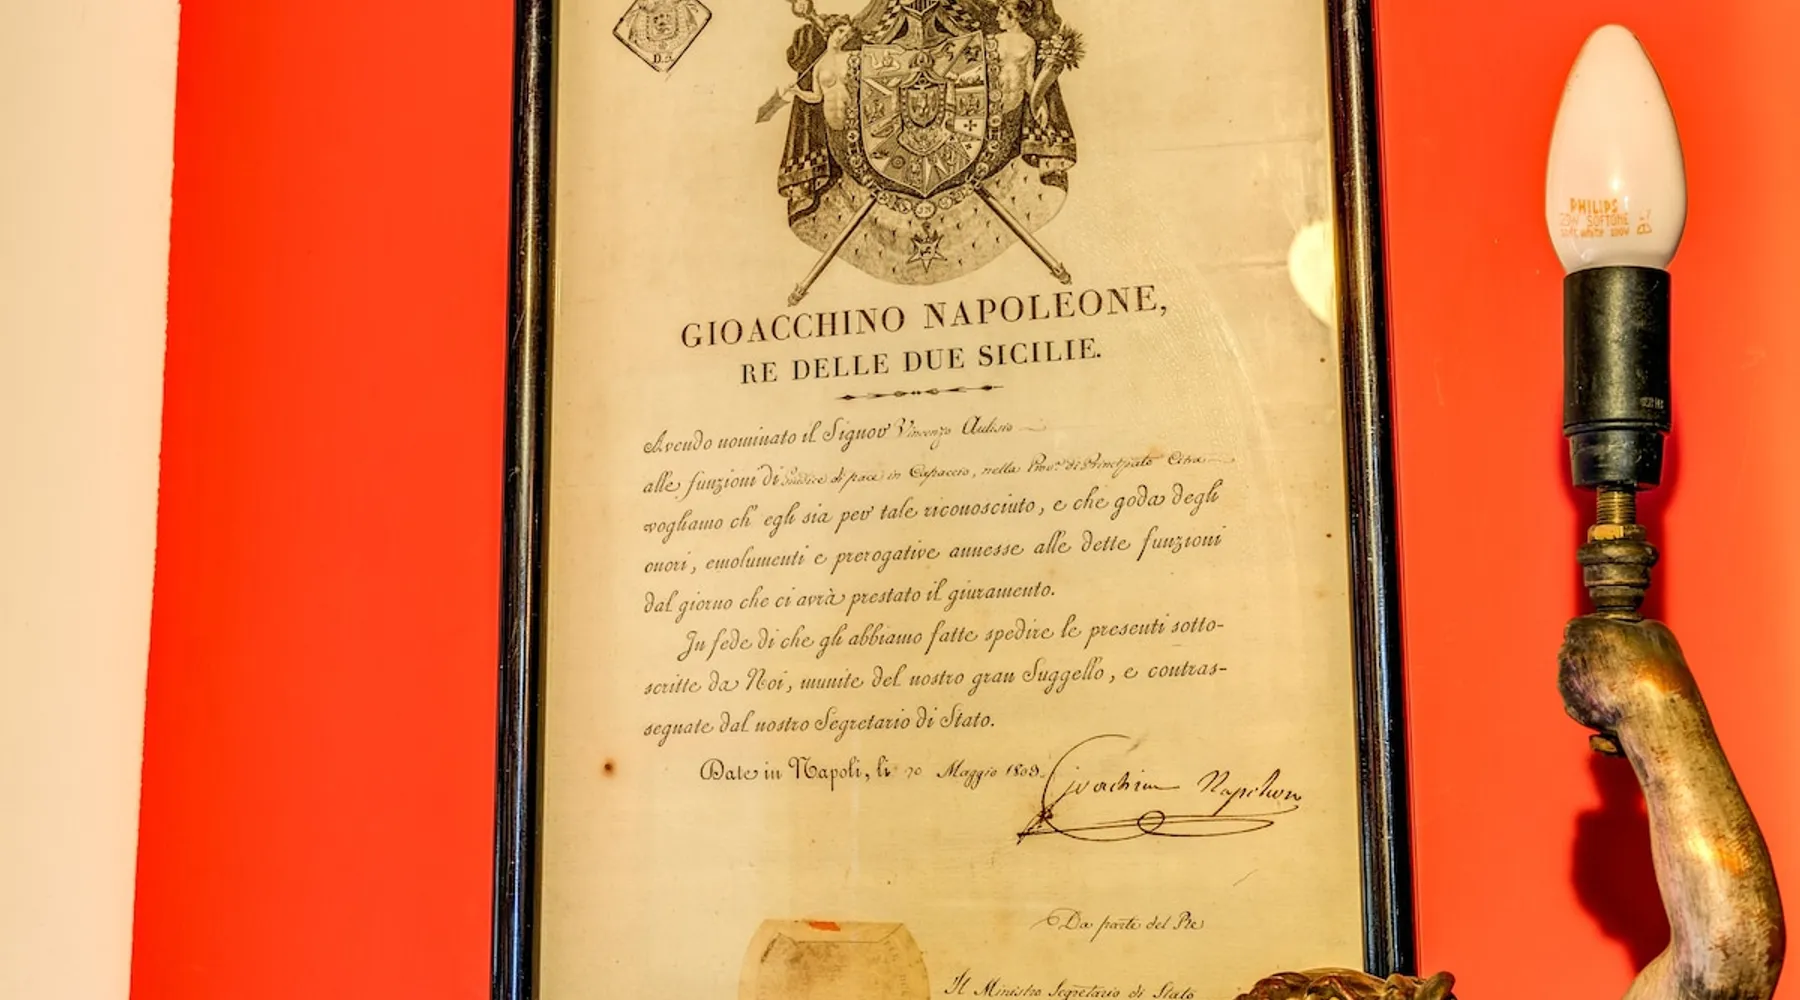 D. 2.
GIOACCHINO NAPOLEONE,
RE DELLE DUE SICILIE.
Avendo nominato il Signor Vincenzo Aulisio
alle funzioni di Giudice di pace in Capaccio, nella Prov.ª di Principato Citra
vogliamo ch' egli sia per tale riconosciuto, e che goda degli
onori, emolumenti e prerogative annesse alle dette funzioni
dal giorno che ci avrà prestato il giuramento.
In fede di che gli abbiamo fatte spedire le presenti sotto-
scritte da Noi, munite del nostro gran Suggello, e contras-
segnate dal nostro Segretario di Stato.
Date in Napoli, li Maggio 1809.
Gioachim Napoleon
Da parte del Re
Il Ministro Segretario di Stato
PHILIPS
SOFTONE